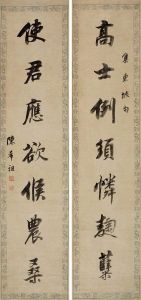 集東坡句
高士例須憐麴蘗
使君應欲候農桑
陳希祖